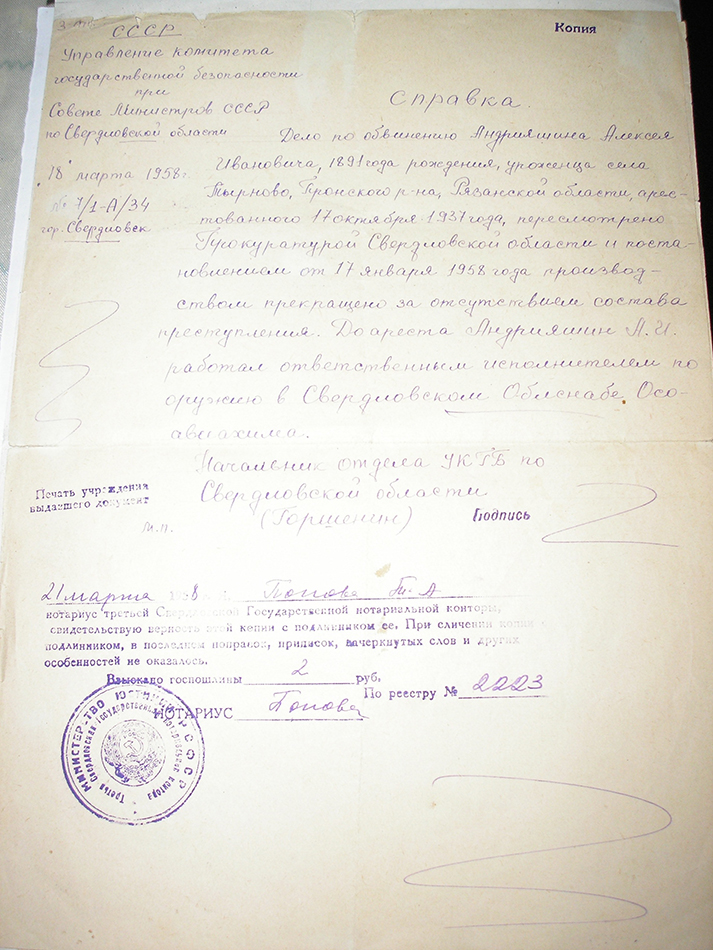 Копия
СССР
Управление комитета
государственной безопасности
при
Совете Министров СССР
по Свердловской области
18 марта 1958г.
№ 7/1-А/34
гор. Свердловск
Справка.
Дело по обвинению Андрияшина Алексея
Ивановича, 1891 года рождения, уроженца села
Тырново, Пронского р-на, Рязанской области, арес-
тованного 17 октября 1937 года, пересмотрено
Прокуратурой Свердловской области и поста-
новлением от 17 января 1958 года производ-
ством прекращено за отсутствием состава
преступления. До ареста Андрияшин А.И.
работал ответственным исполнителем по
оружию в Свердловском Облснабе Осо-
авиахима.
Начальник отдела УКГБ по
Свердловской области
(Горшенин) Подпись
Печать учреждения
выдавшего документ
м.п.
21 марта 1958 г. Попова Т. А
нотариус третьей Свердловской Государственной нотариальной конторы,
свидетельствую верность этой копии с подлинником ее. При сличении копии с
подлинником, в последнем поправок, приписок, зачеркнутых слов и других
особенностей не оказалось.
Взыскано госпошлины 2 руб.
По реестру № 2223
НОТАРИУС Попова
МИНИСТЕР-ТВО ЮСТИЦИИ РСФСР
Третья Свердловская Государственная нотариальная контора